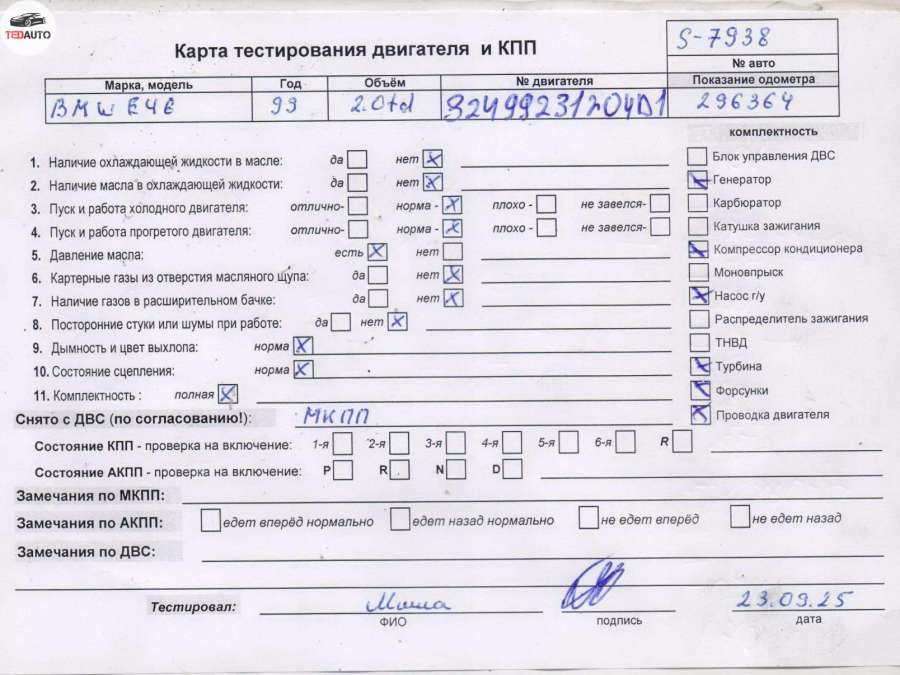 TEDAUTO
Карта тестирования двигателя и КПП
S-7938
№ авто
Марка, модель Год Объём № двигателя Показание одометра
BMW E46 99 2.0td 32499231204D1 296364
комплектность
1. Наличие охлаждающей жидкости в масле: да нет X
2. Наличие масла в охлаждающей жидкости: да нет X
3. Пуск и работа холодного двигателя: отлично- норма - X плохо - не завелся-
4. Пуск и работа прогретого двигателя: отлично- норма - X плохо - не завелся-
5. Давление масла: есть X нет
6. Картерные газы из отверстия масляного щупа: да нет X
7. Наличие газов в расширительном бачке: да нет X
8. Посторонние стуки или шумы при работе: да нет X
9. Дымность и цвет выхлопа: норма X
10. Состояние сцепления: норма X
11. Комплектность : полная X
Блок управления ДВС
X Генератор
Карбюратор
Катушка зажигания
X Компрессор кондиционера
Моновпрыск
X Насос г/у
Распределитель зажигания
ТНВД
X Турбина
X Форсунки
X Проводка двигателя
Снято с ДВС (по согласованию!): МКПП
Состояние КПП - проверка на включение: 1-я 2-я 3-я 4-я 5-я 6-я R
Состояние АКПП - проверка на включение: P R N D
Замечания по МКПП:
Замечания по АКПП: едет вперёд нормально едет назад нормально не едет вперёд не едет назад
Замечания по ДВС:
Тестировал: Миша 23.09.25
ФИО подпись дата